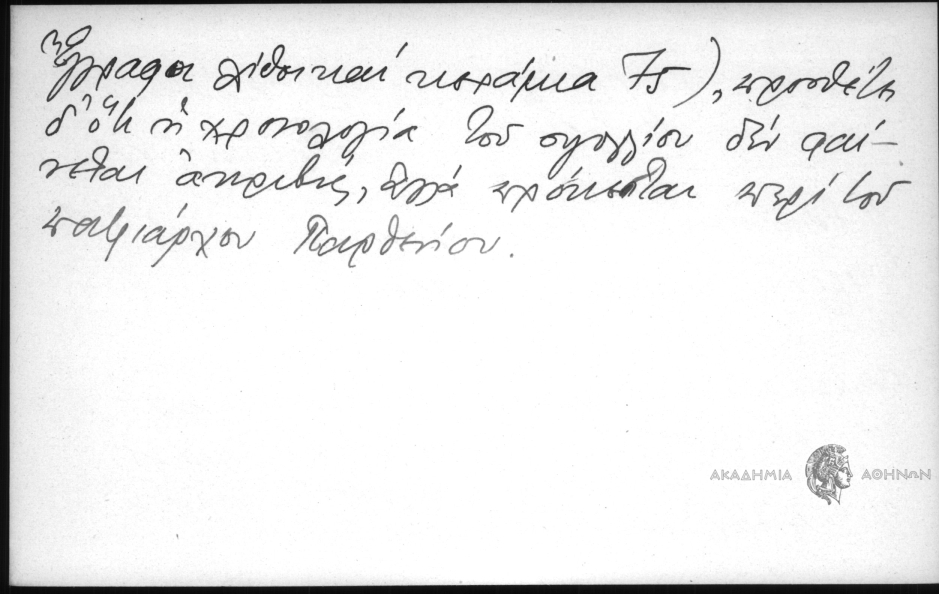 Ἔγγραφοι λίθοι καί κεράμια 75), προσθέτει
δ' ὅτι ἡ χρονολογία τοῦ σιγιλλίου δέν φαί-
νεται ἀκριβής, ἀλλά πρόκειται περί τοῦ
πατριάρχου Παρθενίου.
ΑΚΑΔΗΜΙΑ ΑΘΗΝΩΝ